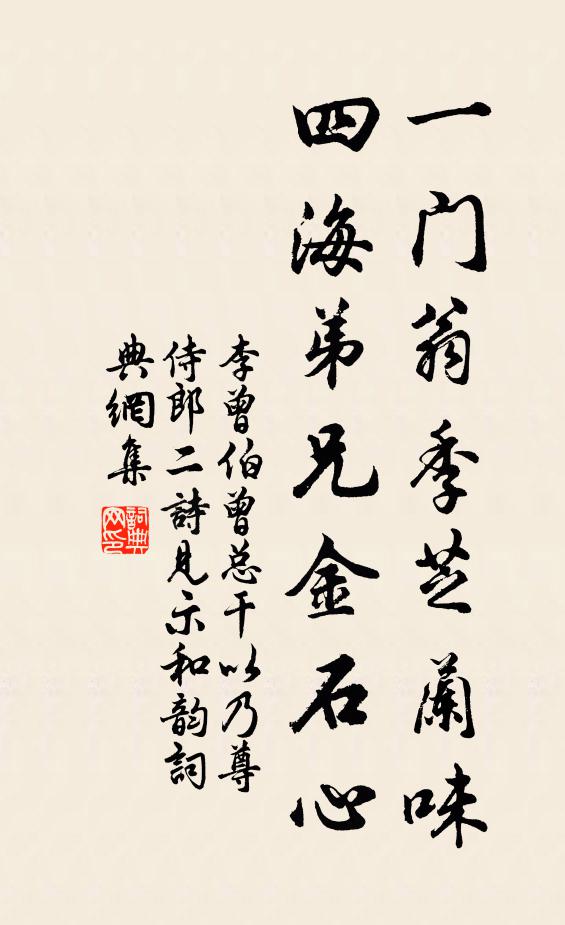 一门翁季芝蘭味
四海弟兄金石心
李曾伯曾总干以乃尊
侍郎二詩見示和韵詞
典網集
詞典
网印